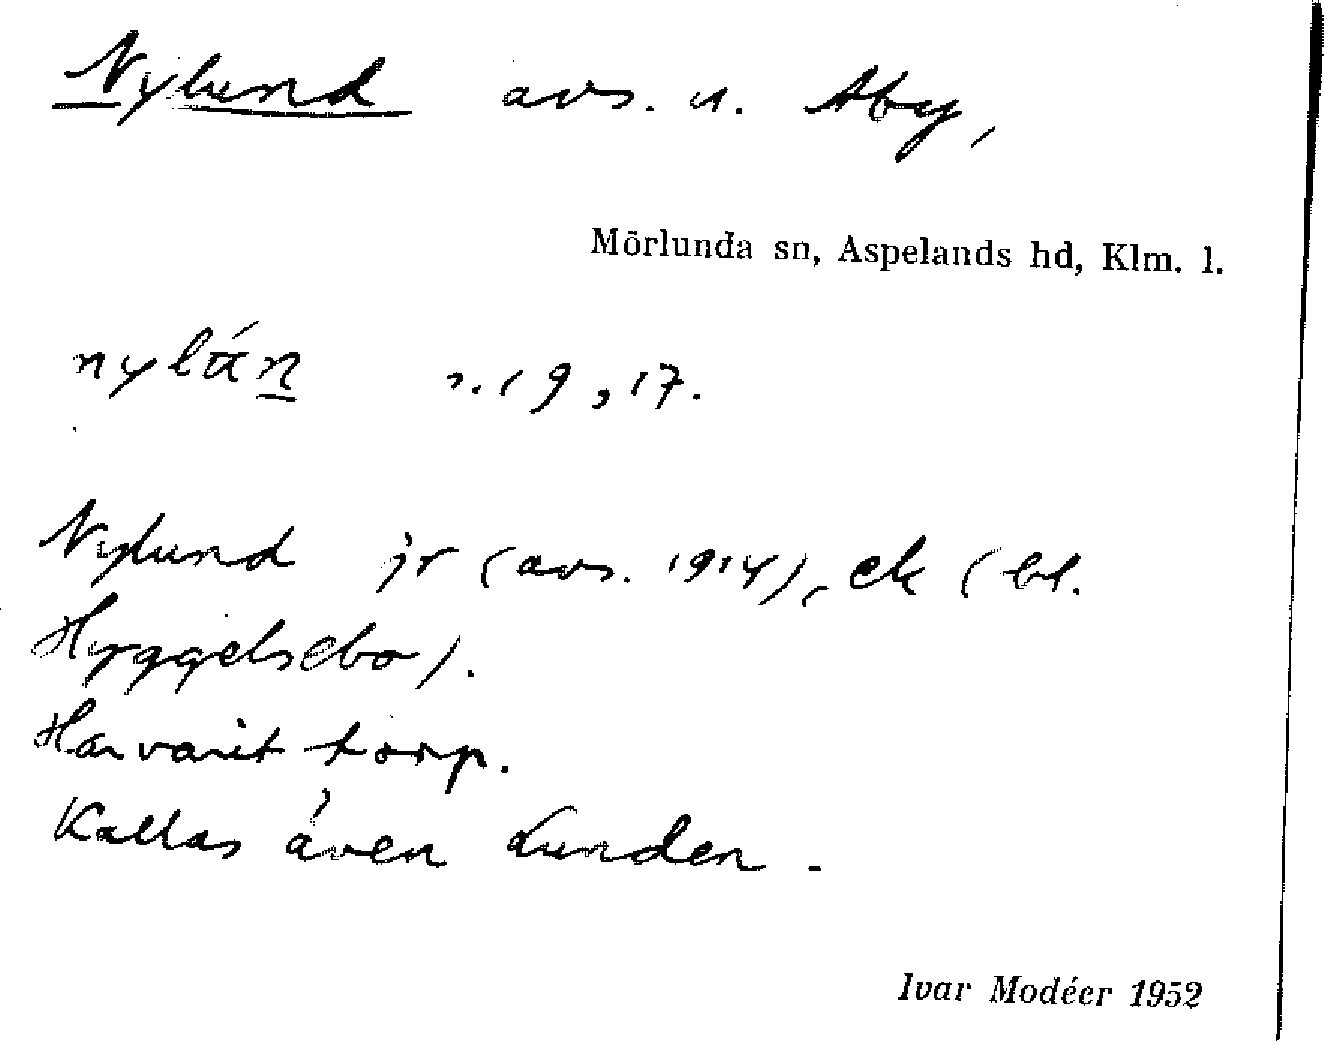 Nylund avs. u. Åby,
Mörlunda sn, Aspelands hd, Klm. l.
s. 19, 17.
Nylund jr (avs. 1914), ek (bl.
Hyggelsebo).
Har varit torp.
Kallas även Lunden.
Ivar Modéer 1952